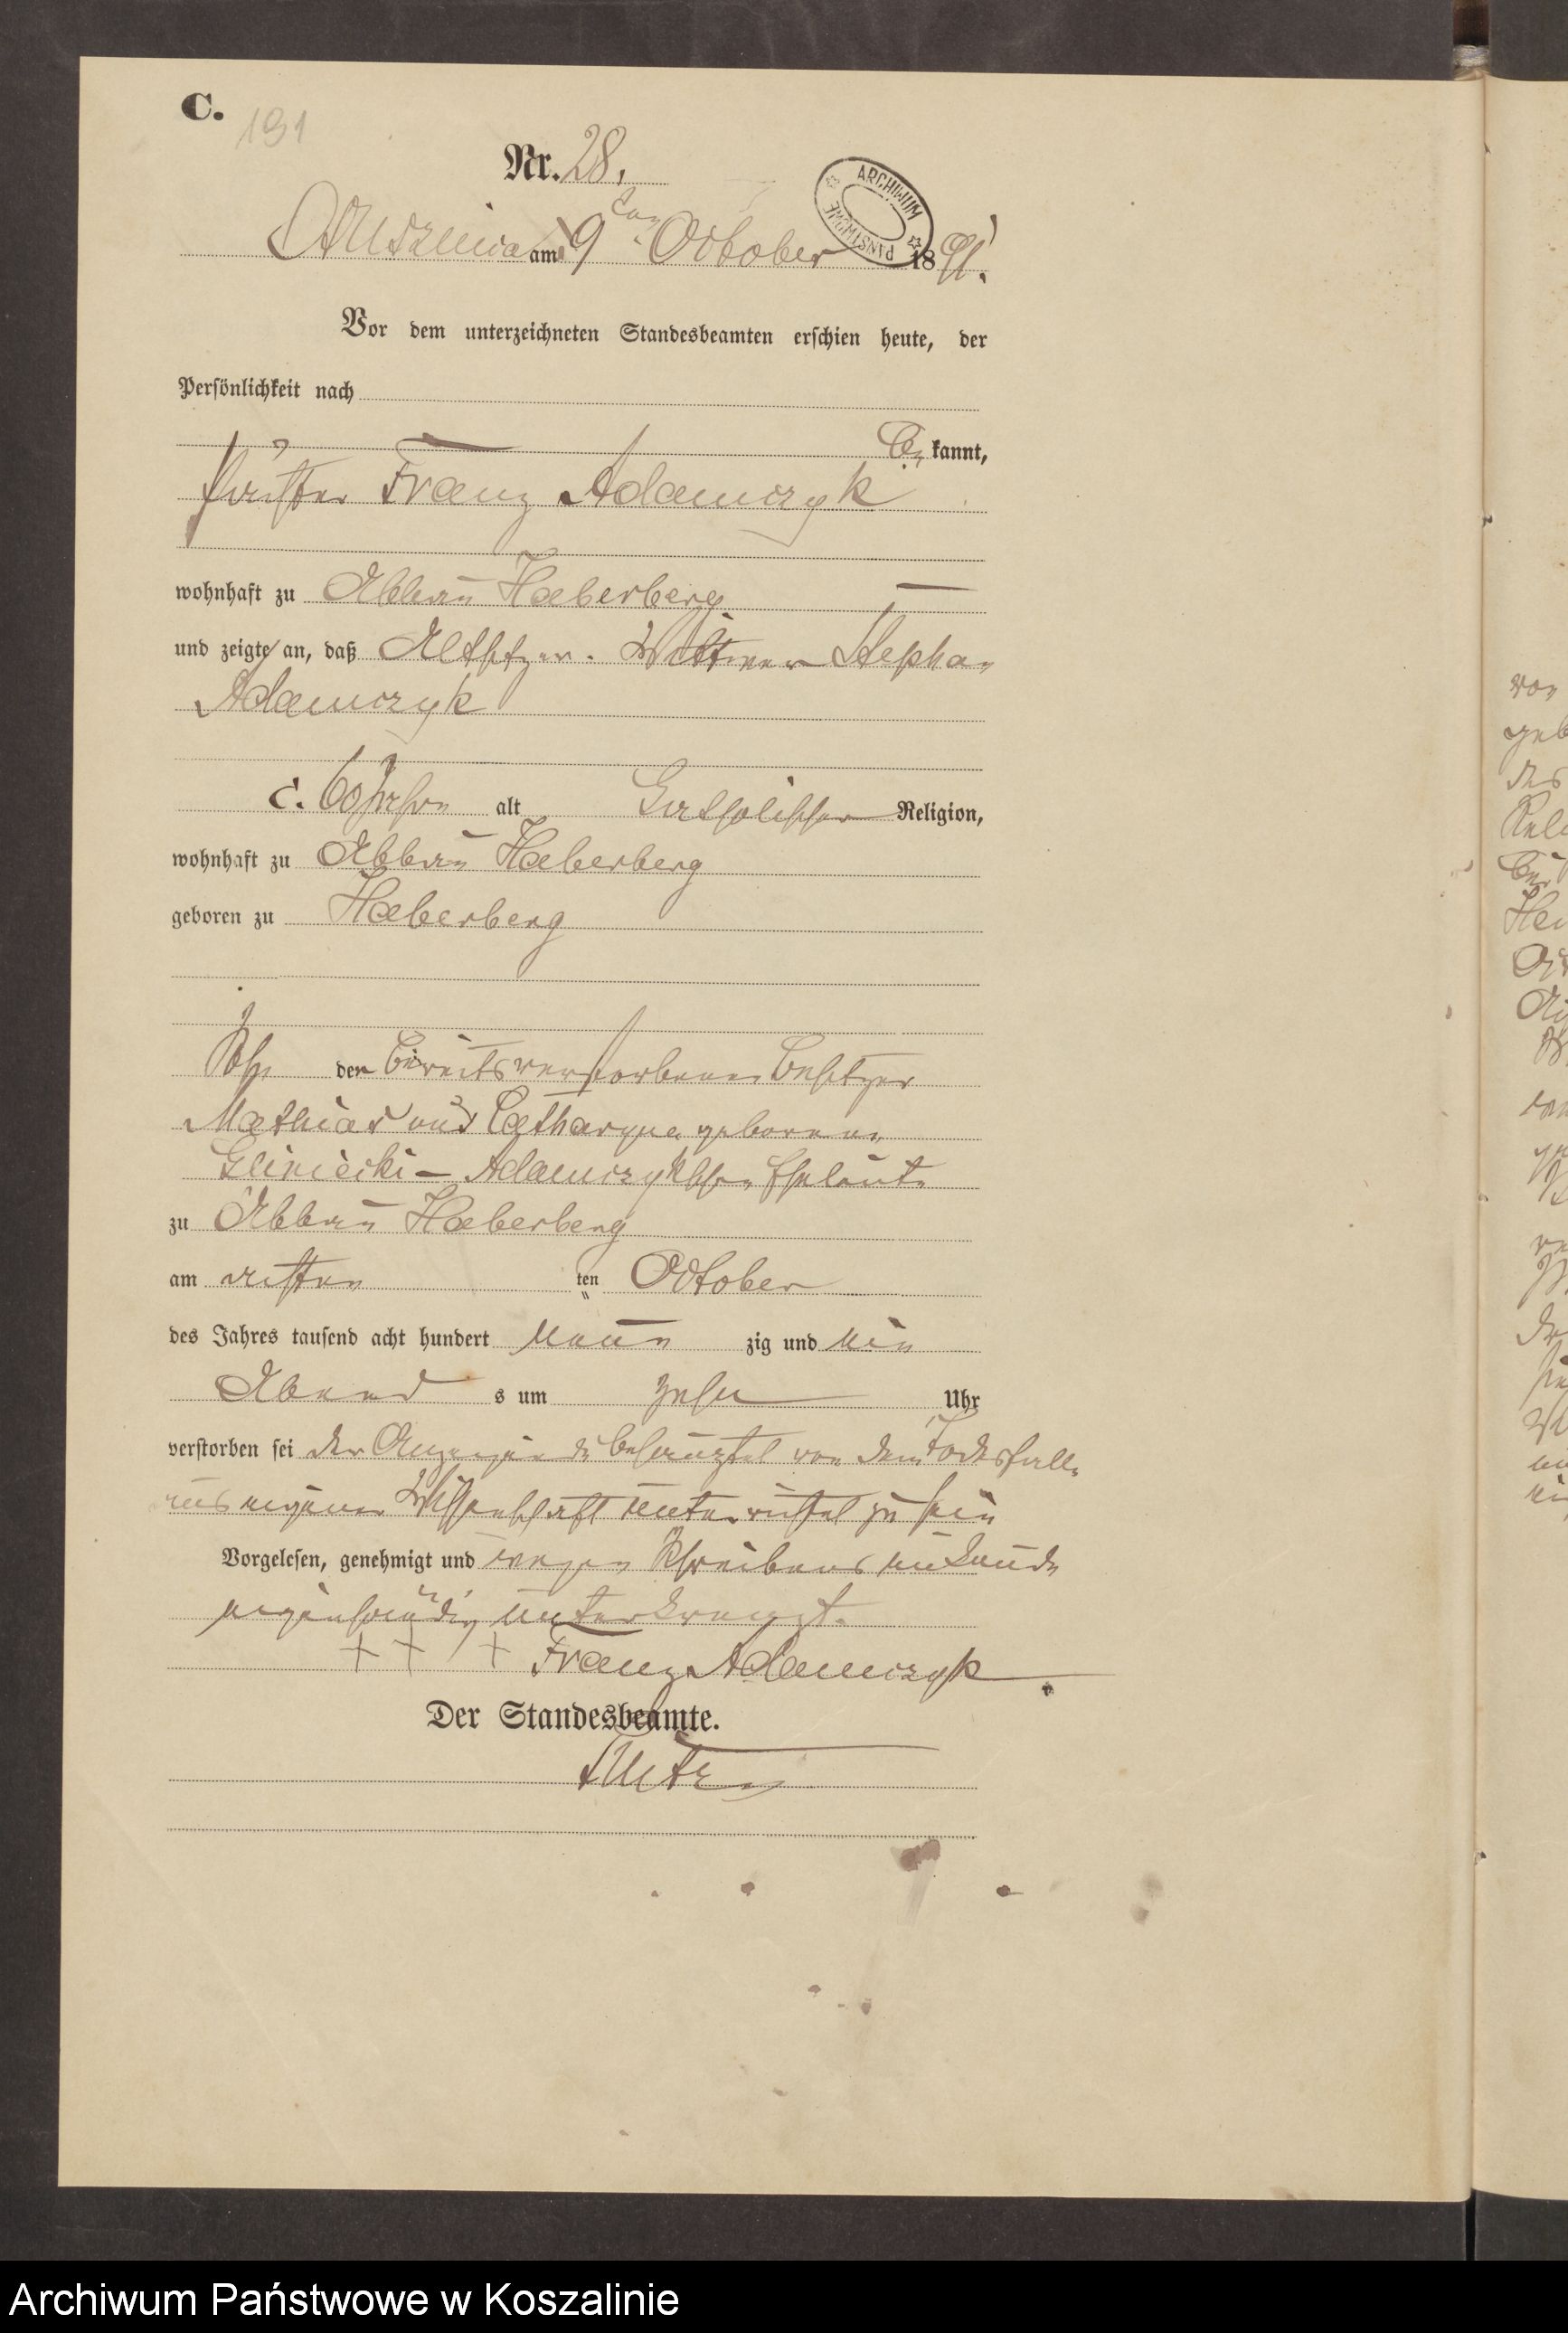 C.
191
Nr. 28.
am 9ten October 1891.
ARCHIWUM PAŃSTWOWE
Vor dem unterzeichneten Standesbeamten erschien heute, der
Persönlichkeit nach
be kannt,
Franz Adamczyk
wohnhaft zu Abbau Haeberberg
und zeigte an, daß Altsitzer. Wittwer Stephan
Adamczyk
c. 60 Jahre alt Catholischer Religion,
wohnhaft zu Abbau Haeberberg
geboren zu Haeberberg
Sohn der bereits verstorbenen Besitzer
Mathias und Catharyna geborenen
Gliniecki - Adamczykschen Eheleute
zu Abbau Haeberberg
am achten ten October
des Jahres tausend acht hundert neun zig und ein
Abend s um zehn Uhr
verstorben sei der Anzeigende behauptet von dem Todesfalle
aus eigener Wissenschaft unterrichtet zu sein
Vorgelesen, genehmigt und wegen Schreibens unkunde
eigenhändig unterkreuzt.
+ + + Franz Adamczyk
Der Standesbeamte.
von
geb
des
Archiwum Państwowe w Koszalinie